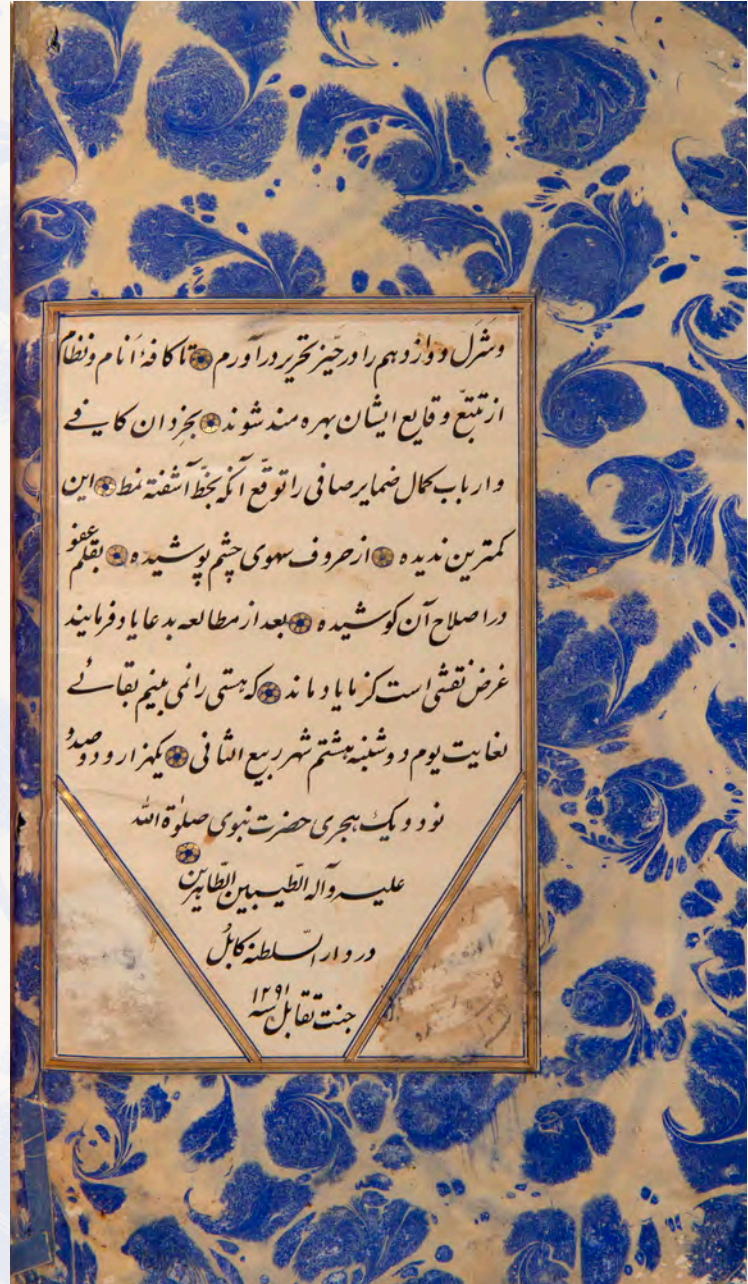 وشرل دوازدهم را در حیّز تحریر درآورم تا کافهٔ اَنام و نظام
از تتبّع وقایع ایشان بهره مند شوند بخِرد ان کافے
و ارباب کمال ضمایر صافی را توقّع آنکه بخطّ آشفته نمط این
کمترین ندیده از حروف سهوی چشم پوشیده بقلم عفو
در اصلاح آن کوشیده بعد از مطالعه بدعا یاد فرمایند
غرض نقشی است کز ما یاد ماند که هستی را نمی بینم بقائے
لغایت یوم دوشنبه هشتم شهر ربیع الثانی یکهزار و دوصد و
نود و یک هجری حضرت نبوی صلوٰة الله
علیه وآله الطّیبین الطّاهرین
در دار السّلطنه کابل
جنت تقابل سنه ۱۲۹۱